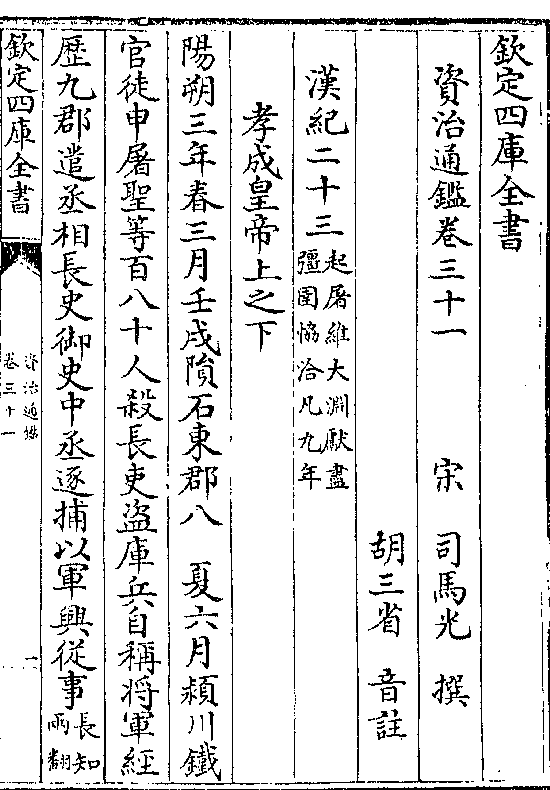 欽定四庫全書
資治通鑑卷三十一
宋 司馬光 撰
胡三省 音註
漢紀二十三起屠維大淵獻盡
彊圉協洽凡九年
孝成皇帝上之下
陽朔三年春三月壬戌隕石東郡八 夏六月潁川鐵
官徒申屠聖等百八十人殺長吏盜庫兵自稱將軍經
歷九郡遣丞相長史御史中丞逐捕以軍興從事長知
兩翻
欽定四庫全書
資治通鑑
卷三十一
一